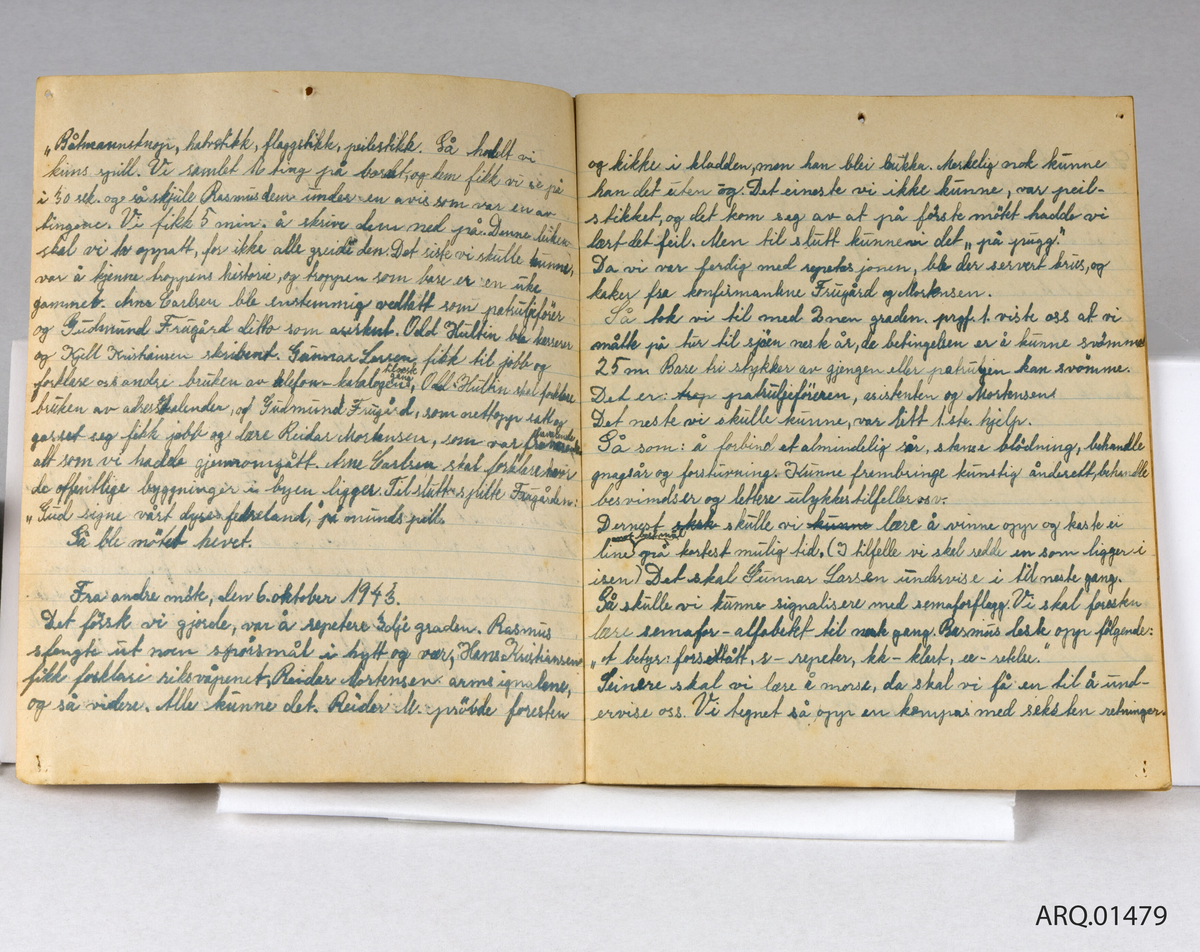 „Båtmannsknop, halvstikk, flaggstikk, peilestikk. Så holdt vi
kims spill. Vi samlet ting på bordet, og dem fikk vi se på
i 30 sek. og så skjulte Rasmus dem under en avis som var en av
tingene. Vi fikk 5 min. å skrive dem ned på. Denne leken
skal vi ta oppatt, for ikke alle greide den. Det siste vi skulle kunne,
var å kjenne troppens historie, og troppen som bare er en uke
gammel. Arne Carlsen ble enstemmig vedtatt som patruljefører
og Gudmund Frugård ditto som assistent. Odd Hultin ble kasserer
og Kjell Kristiansen skribent. Gunnar Larsen fikk til jobb og
forklare oss andre bruken av telefon-katalogen, til neste gang Odd Hultin skal forklare
bruken av adressekalender, og Gudmund Frugård, som nettopp satt og
gasset seg fikk jobb og lære Reidar Mortensen, som var
alt som vi hadde gjennomgått. Arne Carlsen skal forklare hvor
de offentlige byggninger i byen ligger. Til slutt spilte Frugården:
„Gud signe vårt dyre fedreland," på munnspill.
Så ble møtet hevet.
Fra andre møte, den 6. oktober 1943.
Det først vi gjorde, var å repetere 3dje graden. Rasmus
slengte ut noen spørsmål i hytt og vær, Hans Kristiansen
fikk forklare riksvåpenet, Reidar Mortensen armsignalene,
og så videre. Alle kunne det. Reidar M. prövde foresten
og kikke i kladden, men han blei bukka. Merkelig nok kunne
han det uten òg. Det eineste vi ikke kunne, var peil-
stikket, og det kom seg av at på første møtet hadde vi
lært det feil. Men til slutt kunne vi det „på pugg."
Da vi var ferdig med repetasjonen, ble der servert brus, og
kaker fra konfirmantene Frugård og Mortensen.
Så tok vi til med 2nen graden. prgf. 1. viste oss at vi
måtte på tur til sjøen nesk år, de betingelsen er å kunne svømme
25 m. Bare tri stykker av gjengen eller patruljen kan svömme.
Det er: patruljeföreren, asistenten og Mortensen!
Det neste vi skulle kunne, var litt 1. ste. hjelp.
Så som: å forbind et almindelig sår, stanse blödning, behandle
gnagsår og forstuvning. Kunne frembringe kunstig åndedrett, behandle
besvimelser og lettere ulykkestilfeller osv.
Dernest skulle vi kunne lære å vinne opp og kaste ei
line mot bestemt mål på kortest mulig tid. (I tilfelle vi skal redde en som ligger i
isen) Det skal Gunnar Larsen undervise i til neste gang.
Så skulle vi kunne signalisere med semaforflagg. Vi skal foresten
lære semafor-alfabetet til nesk gang. Rasmus lesk opp følgende:
„et betyr: forsettått, s- repeter, kk- klart, ee- retelse."
Seinere skal vi lære å morse, da skal vi få en til å und-
ervise oss. Vi tegnet så opp en kompas med seksten retninger.
ARQ.01479